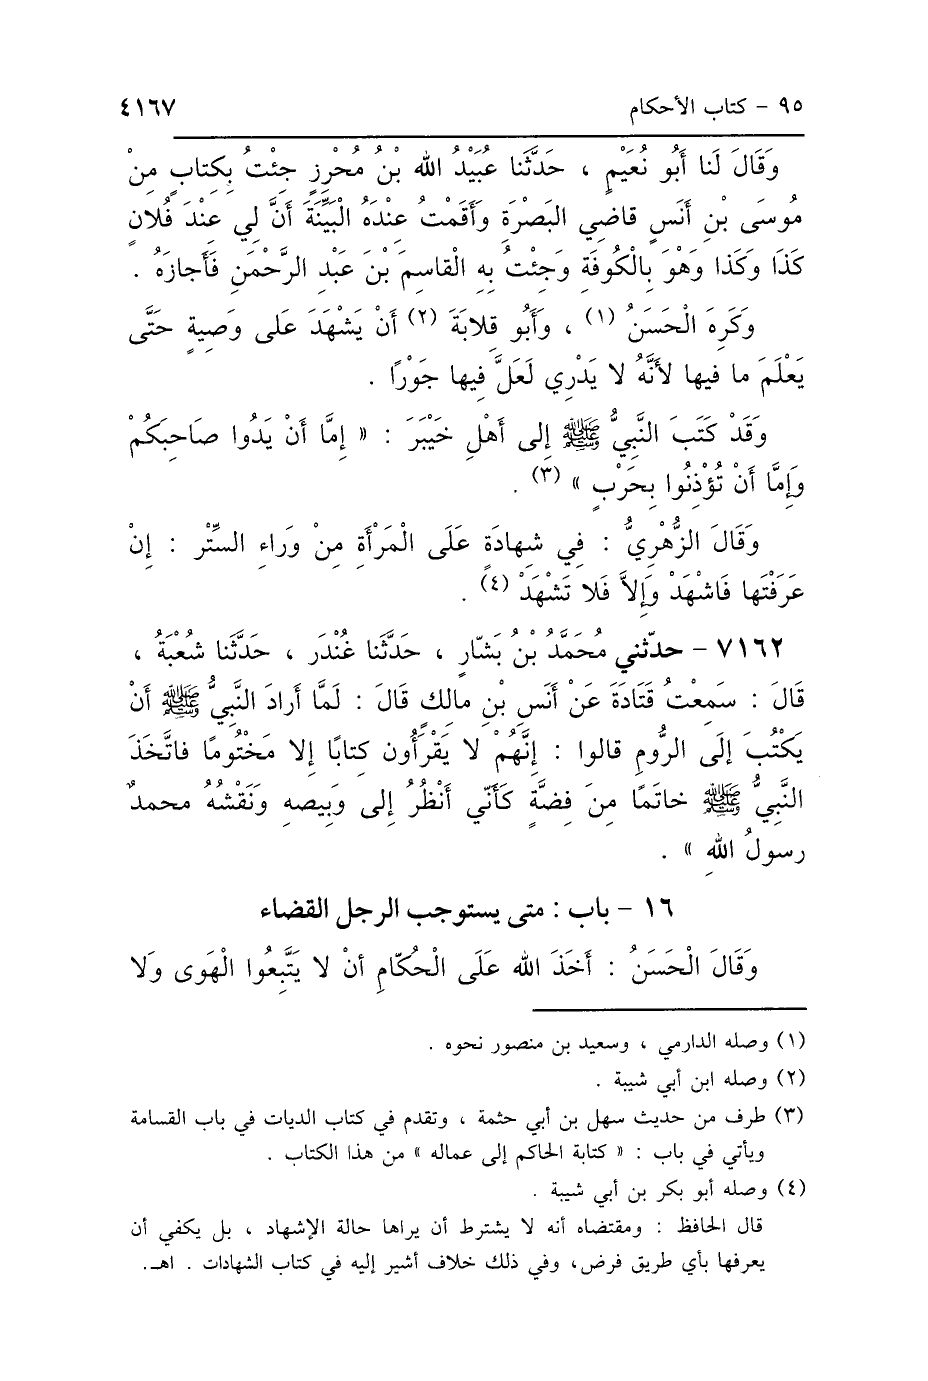 ٩٥ - كتاب الأحكام ٤١٦٧
وَقَالَ لَنا أَبُو نُعَيْمٍ ، حَدَّثَنا عُبَيْدُ الله بْنُ مُحْرِزٍ جِئْتُ بِكِتابٍ مِنْ
مُوسَى بْنِ أَنَسٍ قاضِي البَصْرَةِ وَأَقَمْتُ عِنْدَهُ الْبَيِّنَةَ أَنَّ لي عِنْدَ فُلانٍ
كَذَا وَكَذا وَهْوَ بِالْكُوفَةِ وَجِئْتُ بِهِ الْقاسِمَ بْنَ عَبْدِ الرَّحْمَنِ فَأَجازَهُ .
وَكَرِهَ الْحَسَنُ (١) ، وَأَبُو قِلابَةَ (٢) أَنْ يَشْهَدَ عَلى وَصِيةٍ حَتَّى
يَعْلَمَ ما فيها لأَنَّهُ لا يَدْرِي لَعَلَّ فيها جَوْرًا .
وَقَدْ كَتَبَ النَّبِيُّ ﷺ إلى أَهْلِ خَيْبَرَ : « إمَّا أَنْ يَدُوا صاحِبَكُمْ
وَإِمَّا أَنْ تُؤْذِنُوا بِحَرْبٍ » (٣) .
وَقَالَ الزُّهْرِيُّ : فِي شهادَةٍ عَلَى الْمَرْأَةِ مِنْ وَراءِ السِّتْرِ : إِنْ
عَرَفْتَها فَاشْهَدْ وَإِلاَّ فَلا تَشْهَدْ (٤) .
٧١٦٢ - حدّثني مُحَمَّدُ بْنُ بَشّارٍ ، حَدَّثَنا غُنْدَر ، حَدَّثَنا شُعْبَةُ ،
قَالَ : سَمِعْتُ قَتَادَةَ عَنْ أَنَسِ بْنِ مالكٍ قَالَ : لَمَّا أَرادَ النَّبِيُّ ﷺ أَنْ
يَكْتُبَ إِلَى الرُّومِ قالوا : إِنَّهُمْ لا يَقْرَأُون كِتابًا إلا مَخْتُومًا فاتَّخَذَ
النَّبِيُّ ﷺ خاتَمًا مِنَ فِضَّةٍ كَأَنّي أَنْظُرُ إلى وَبيصِهِ وَنَقْشُهُ محمدٌ
رسولُ اللهِ » .
١٦ - باب : متى يستوجب الرجل القضاء
وَقَالَ الْحَسَنُ : أَخَذَ الله عَلَى الْحُكّامِ أنْ لا يَتَّبِعُوا الْهَوى وَلا
(١) وصله الدارمي ، وسعيد بن منصور نحوه .
(٢) وصله ابن أبي شيبة .
(٣) طرف من حديث سهل بن أبي حثمة ، وتقدم في كتاب الديات في باب القسامة
ويأتي في باب : « كتابة الحاكم إلى عماله » من هذا الكتاب .
(٤) وصله أبو بكر بن أبي شيبة .
قال الحافظ : ومقتضاه أنه لا يشترط أن يراها حالة الإشهاد ، بل يكفي أن
يعرفها بأي طريق فرض، وفي ذلك خلاف أشير إليه في كتاب الشهادات . اهـ.